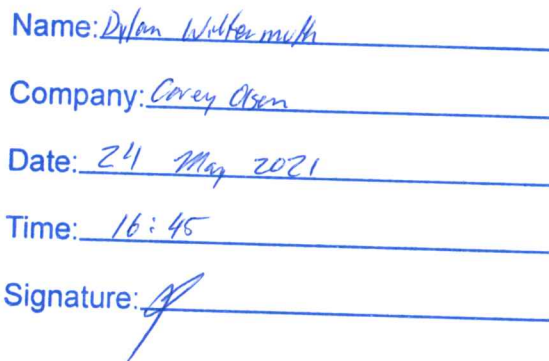 Name: Dylan Wiltermuth
Company: Carey Olsen
Date: 24 May 2021
Time: 16:45
Signature: